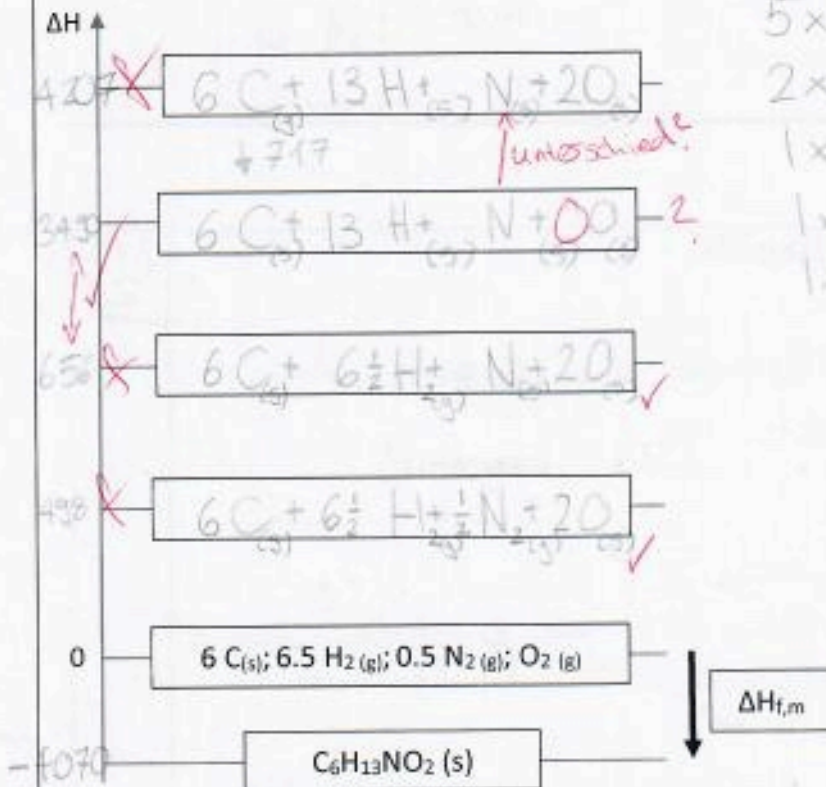 ΔH
5 ×
4207 6 C(g) + 13 H(g) + N(g) + 2O(g)
2 ×
+717
unterschied?
1 ×
6 C(s) + 13 H(g) + N(g) + O O(g) ?
1
1
656 6 C(s) + 6½ H2(g) + N(g) + 2O(g)
498 6 C(s) + 6½ H2(g) + ½ N2(g) + 2O(g)
0 6 C(s); 6.5 H2 (g); 0.5 N2 (g); O2 (g)
ΔHf,m
-1070 C6H13NO2 (s)